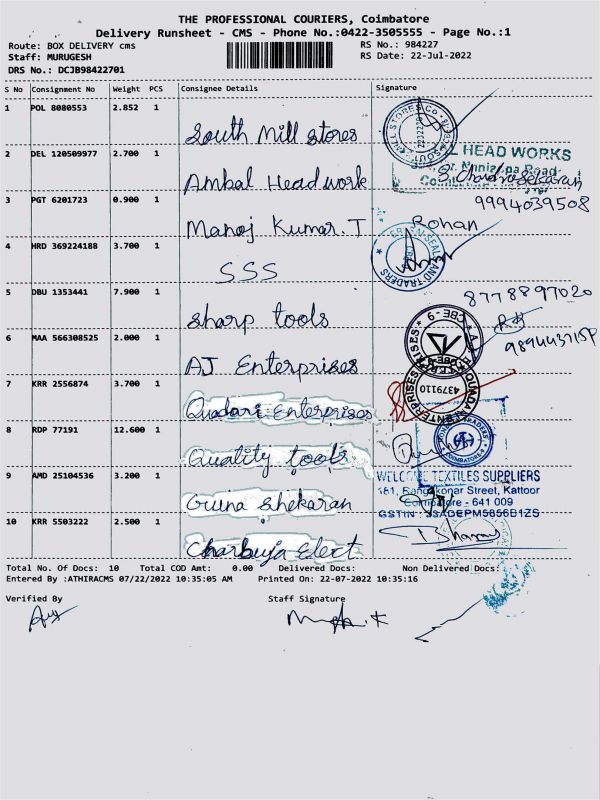 THE PROFESSIONAL COURIERS, Coimbatore
Delivery Runsheet - CMS - Phone No.:0422-3505555 - Page No.:1
Route: BOX DELIVERY cms RS No.: 984227
Staff: MURUGESH RS Date: 22-Jul-2022
DRS No.: DCJB98422701
S No Consignment No Weight PCS Consignee Details Signature
1 POL 8080553 2.852 1 South Mill Stores
2 DEL 120509977 2.700 1 Ambal Head work
L HEAD WORKS
S. Chandrasekaran
9994039508
3 PGT 6201723 0.900 1 Manoj Kumar. T Rohan
4 HRD 369224188 3.700 1 SSS
5 DBU 1353441 7.900 1 Sharp tools
8778897020
6 MAA 566308525 2.000 1 AJ Enterprises
7 KRR 2556874 3.700 1 Quadari Enterprises
4379110
8 RDP 77191 12.600 1 Quality tools
9 AMD 25104536 3.200 1 Guna Shekaran
WELCOME TEXTILES SUPPLIERS
181, Rangakonar Street, Kattoor
Coimbatore - 641 009
GSTIN : 33ADEPM5856B1ZS
10 KRR 5503222 2.500 1 Charbuja Elect
Total No. Of Docs: 10 Total COD Amt: 0.00 Delivered Docs: Non Delivered Docs:
Entered By :ATHIRACMS 07/22/2022 10:35:05 AM Printed On: 22-07-2022 10:35:16
Verified By Staff Signature